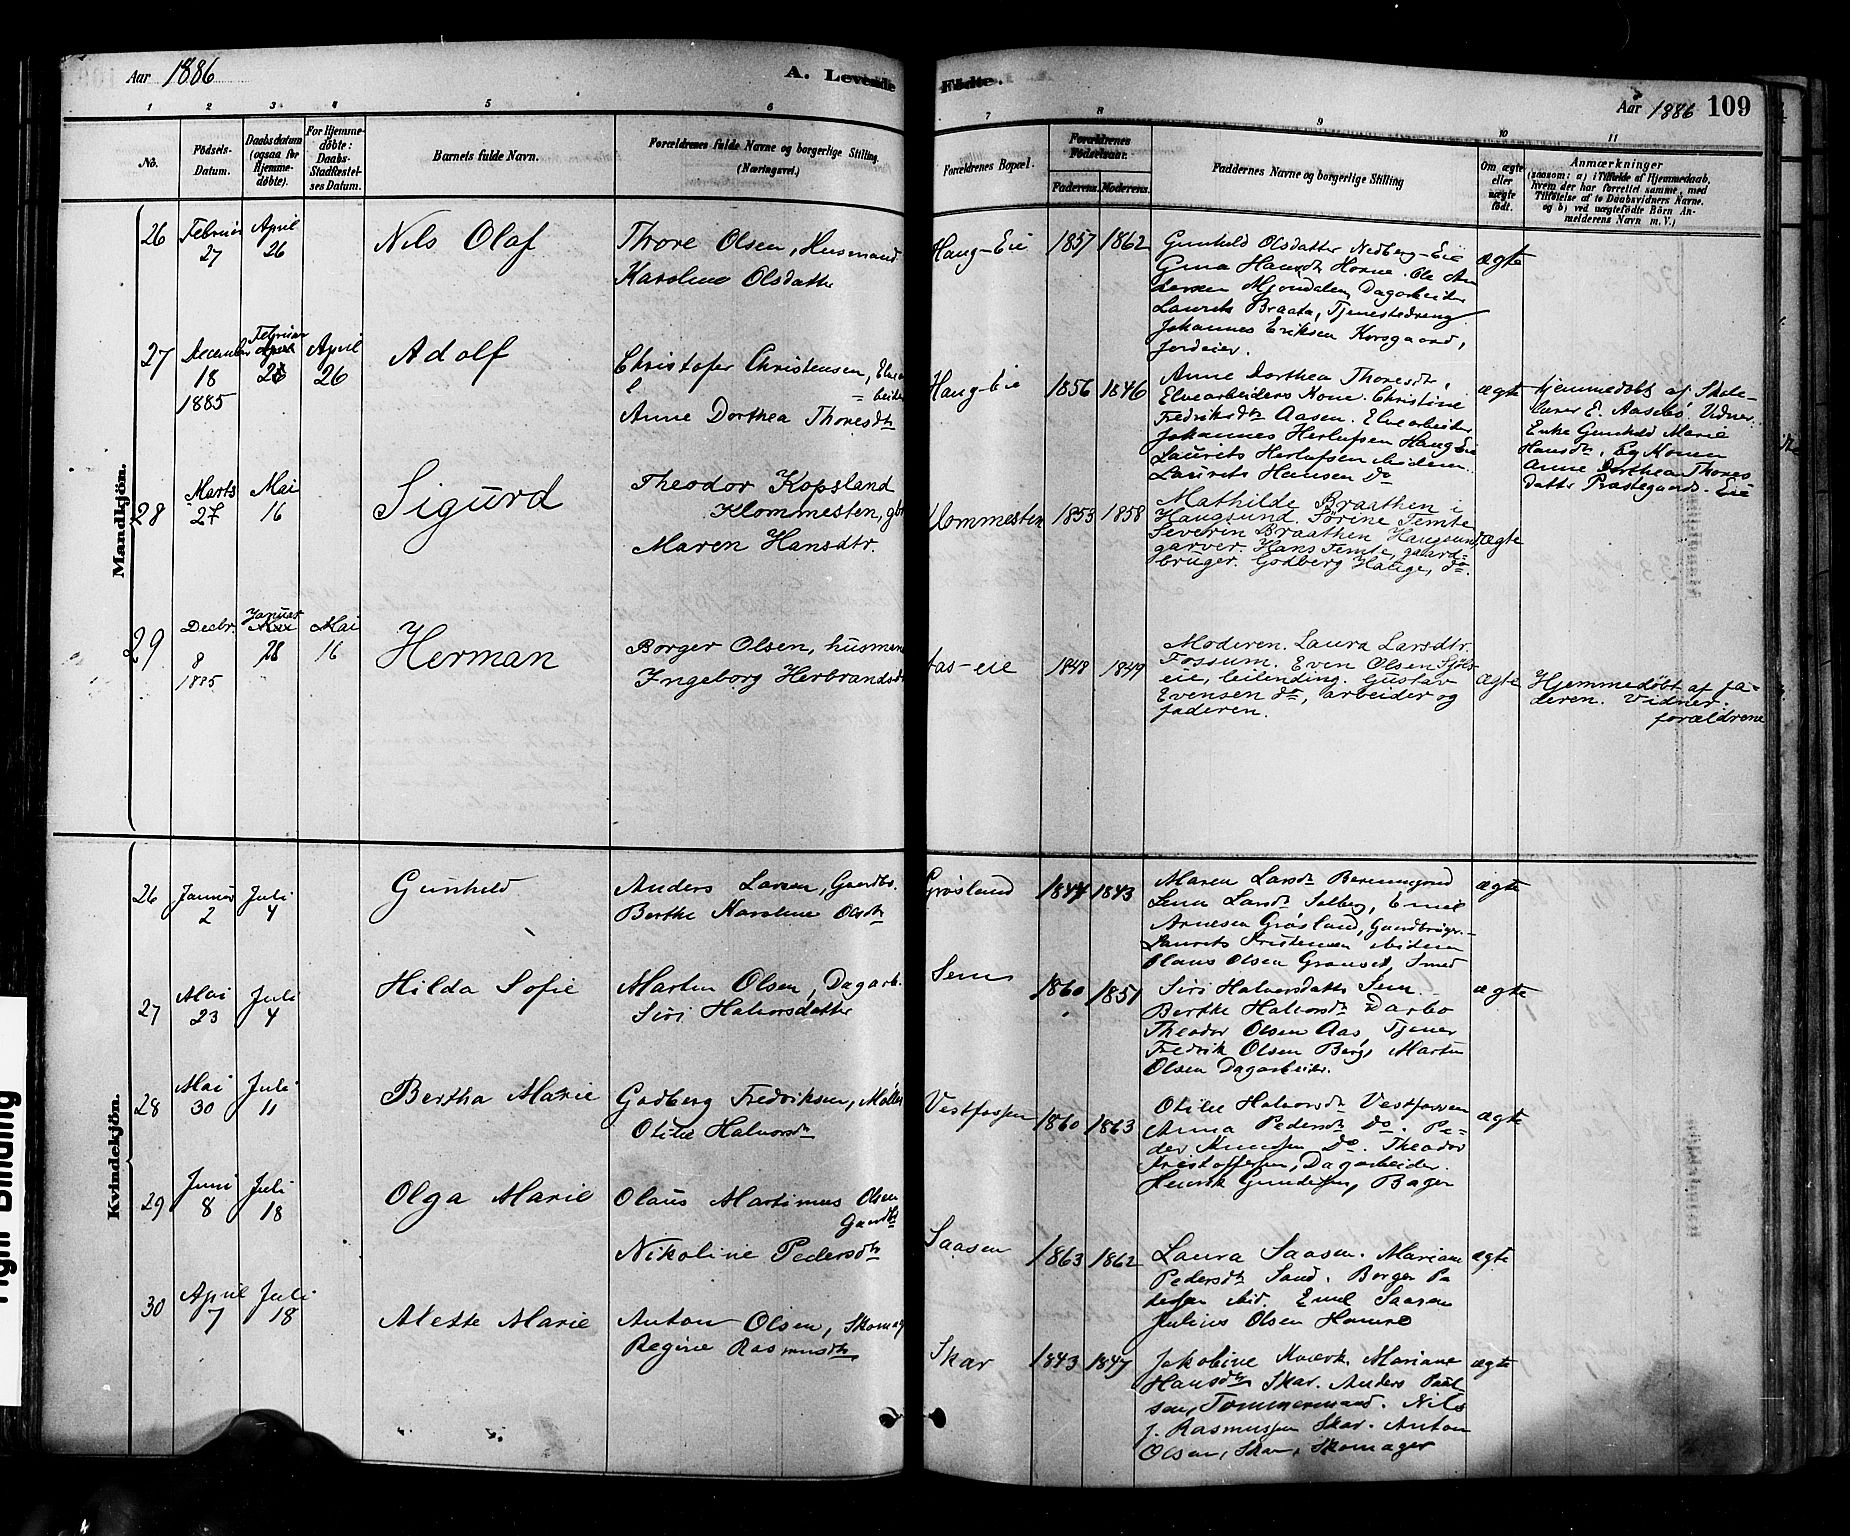 Aar 1886
A. Levende
Fødte.
Aar 1886 109
1 2 3 4 5 6 7 8 9 10 11
No.
Fødsels-
Datum.
Daabsdatum
(ogsaa for
Hjemme-
døbte).
For Hjemme-
døbte:
Daabs-
Stadfæstel-
ses Datum.
Barnets fulde Navn.
Forældrenes fulde Navne og borgerlige Stilling
(Næringsvei.)
Forældrenes Bopæl.
Forældrenes
Fødselsaar.
Faderens. Moderens.
Faddernes Navne og borgerlige Stilling
Om ægte
eller
uægte
født.
Anmærkninger
(saasom: a) i Tilfælde af Hjemmedaab,
hvem der har forrettet samme, med
Tilføielse af to Daabsvidners Navne,
og b) ved uægtefødte Börn An-
melderens Navn m. V.)
Mandkjön.
26
Februar
27
April
26
Nils Olaf
Thore Olsen, Husmand
Karoline Olsdatter
Haug-Eie
1857 1862
Gunhild Olsdatter Nedberg-Eie
Gina Hansdtr Horne. Ole An
dersen Mjøndalen, Dagarbeider
Laurits Braata, Tjenestedreng
Johannes Eriksen Korsgaard,
Jordeier.
ægte
27
December
18
1885
Februar
April
26
Adolf
Christofer Christensen, Elvear
beider
Anne Dorthea Thoresdtr
Haug-Eie
1856 1846
Anne Dorthea Thoresdtr,
Elvearbeiders Kone. Christine
Fredriksdtr Aasen. Elvearbeider
Johannes Herlufsen Haug Eie
Laurits Herlufsen ibidem.
Laurits Hansen Do
ægte
Hjemmedøbt af Skole-
lærer E. Aasebø. Vidner:
Enke Gunhild Marie
Hansdtr, Eg Konen
Anne Dorthea Thores
datter Præstegaards-Eie
28
Marts
27
Mai
16
Sigurd
Theodor Kopsland
Klommesten, gbr
Maren Hansdtr.
Klommesten
1853 1858
Mathilde Braathen i
Haugsund. Sørine Temte
Severin Braathen Haugsund,
garver. Hans Temte, gaard-
bruger. Godberg Hauge, do.
ægte
29
Decbr.
8
1885
Januar
Mai
28
Mai
16
Herman
Borger Olsen, husmand
Ingeborg Herbrandsdtr
Aas-eie
1848 1849
Moderen. Laura Larsdtr.
Fossum. Even Olsen Sjøls-
eie, leilending. Gustav
Evensen do, arbeider og
faderen.
ægte
Hjemmedøbt af fa-
deren. Vidner:
forældrene
Kvindekjön.
26
Januar
2
Juli
4
Gunhild
Anders Larsen, Gaardbr.
Berthe Karoline Olsdtr
Grøsland
1844 1843
Maren Larsdtr
Lena Larsdtr Solberg, Emil
Arnesen Grøsland, Gaardbruger.
Laurits Kristensen ibidem
Olaus Olsen Gronset, Smed
ægte
27
Mai
23
Juli
4
Hilda Sofie
Martin Olsen, Dagarb.
Siri Halvorsdatter
Sem
1860 1857
Siri Halvorsdatter Sem
Berthe Halvorsdtr Darbo
Theodor Olsen Aas Tjener
Fredrik Olsen Berg, Martin
Olsen Dagarbeider.
ægte
28
Mai
30
Juli
11
Bertha Marie
Godberg Fredriksen, Møller
Otilie Halvorsdtr
Vestfossen
1860 1863
Otilie Halvorsdtr Vestfossen
Anna Pedersdtr Do. Pe-
der Knudsen Do. Theodor
Kristoffersen, Dagarbeider.
Henrik Gundersen, Bager
ægte
29
Juni
8
Juli
18
Olga Marie
Olaus Martinius Olsen
Gaardbr
Nikoline Pedersdtr
Saasen
1863 1862
Laura Saasen. Mariane
Pedersdtr Sand. Borger Pe
dersen ibid. Emil Saasen
Julius Olsen Hamre
ægte
30
April
7
Juli
18
Alette Marie
Anton Olsen, Skomag
Regine Rasmusdtr
Skar
1843 1847
Jakobine Mariane
Hansdtr Skar. Anders Paul-
sen, Tømmermand. Nils
J. Rasmussen Skar. Anton
Olsen, Skar, Skomager
ægte